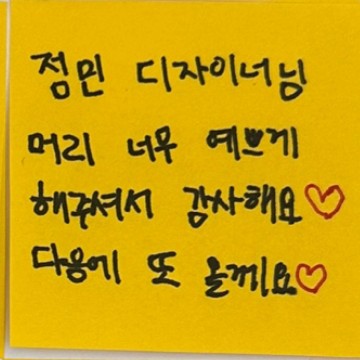 점민 디자이너님
머리 너무 예쁘게
해주셔서 감사해요♡
다음에 또 올께요♡